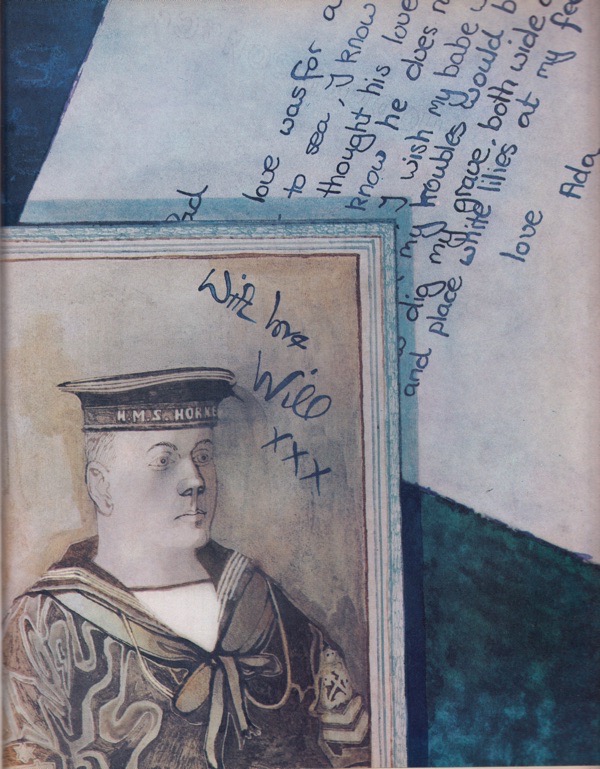 Dad
love was for a
to sea, I know
thought his love
know he does n
I wish my babe
my troubles would b
dig my grave, both wide
and place white lilies at my fee
love Ada
With love
Will
xxx
H.M.S. HORNE